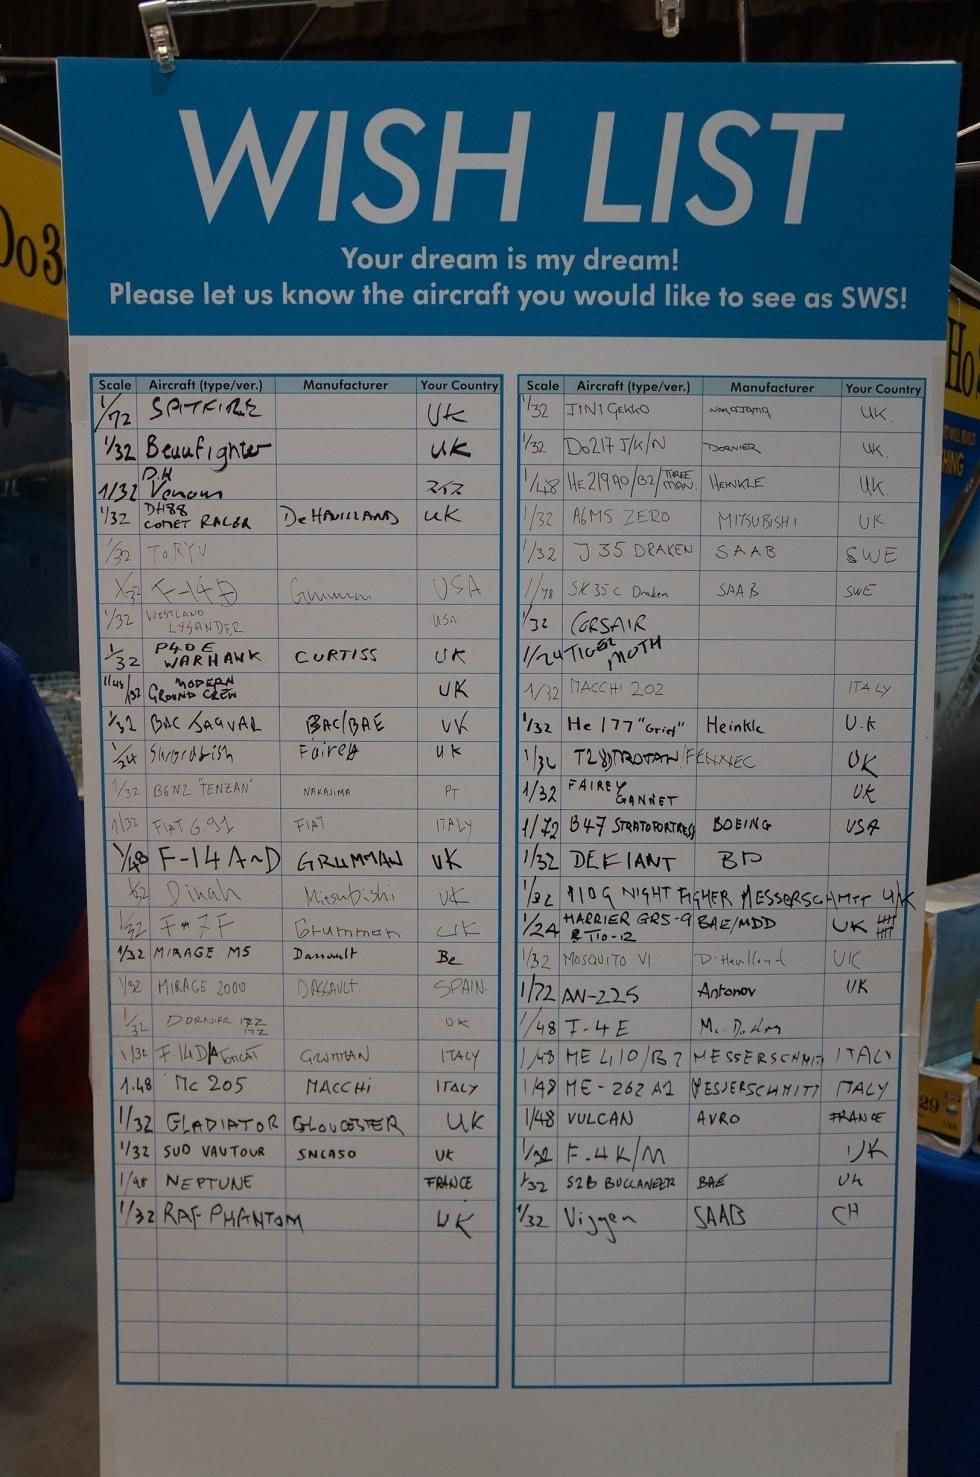 WISH LIST
Your dream is my dream!
Please let us know the aircraft you would like to see as SWS!
Scale Aircraft (type/ver.) Manufacturer Your Country
1/72 SPITFIRE UK
1/32 Beaufighter UK
1/32 D.H Venom
1/32 DH88 COMET RACER DEHAVILLAND UK
1/32 TORYU
1/32 F-14D Grumman USA
1/32 WESTLAND LYSANDER USA
1/32 P40E WARHAWK CURTISS UK
1/48/1/32 MODERN GROUND CREW UK
1/32 BAC JAGUAR BAC/BAE UK
1/24 Swordfish Fairey UK
1/32 B6N2 "TENZAN" NAKAJIMA PT
1/32 FIAT G.91 FIAT ITALY
1/48 F-14A~D GRUMMAN UK
1/32 Dinah Mitsubishi UK
1/32 F-7F Grumman UK
1/32 MIRAGE M5 Dassault Be
1/32 MIRAGE 2000 DASSAULT. SPAIN.
1/32 DORNIER 17Z UK
1/32 F-14D/A TOMCAT GRUMMAN ITALY
1.48 Mc 205 MACCHI ITALY
1/32 GLADIATOR GLOUCESTER UK
1/32 SUD VAUTOUR SNCASO UK
1/48 NEPTUNE FRANCE
1/32 RAF PHANTOM UK
Scale Aircraft (type/ver.) Manufacturer Your Country
1/32 J1N1 GEKKO NAKAJAMA UK.
1/32 Do217 J/K/N DORNIER UK.
1/48 HE219A0/B2/THREE MAN. HEINKLE UK.
1/32 A6M5 ZERO MITSUBISHI UK
1/32 J 35 DRAKEN SAAB SWE
1/48 SK 35 C Draken SAAB SWE
1/32 CORSAIR
1/24 TIGER MOTH
1/32 MACCHI 202 ITALY
1/32 He 177 "Grief" Heinkle U.K
T28 TROJAN/FENNEC UK
1/32 FAIREY GANNET UK
1/72 B47 STRATOFORTRESS BOEING USA
1/32 DEFIANT BP
1/32 110G NIGHT FIGHER MESSERSCHMITT UK
1/24 HARRIER GR5-9 & T10-12 BAE/MDD UK
1/32 MOSQUITO VI D'Havilland UK
1/72 AN-225 Antonov UK
1/48 F-4E
1/48 ME 410/B2 MESSERSCHMITT ITALY
1/48 ME-262 A1 MESSERSCHMITT ITALY
1/48 VULCAN AVRO FRANCE
1/32 F-4K/M UK
1/32 S2B BUCCANEER BAE UK
1/32 Viggen SAAB CH
Do 3
Ho
29